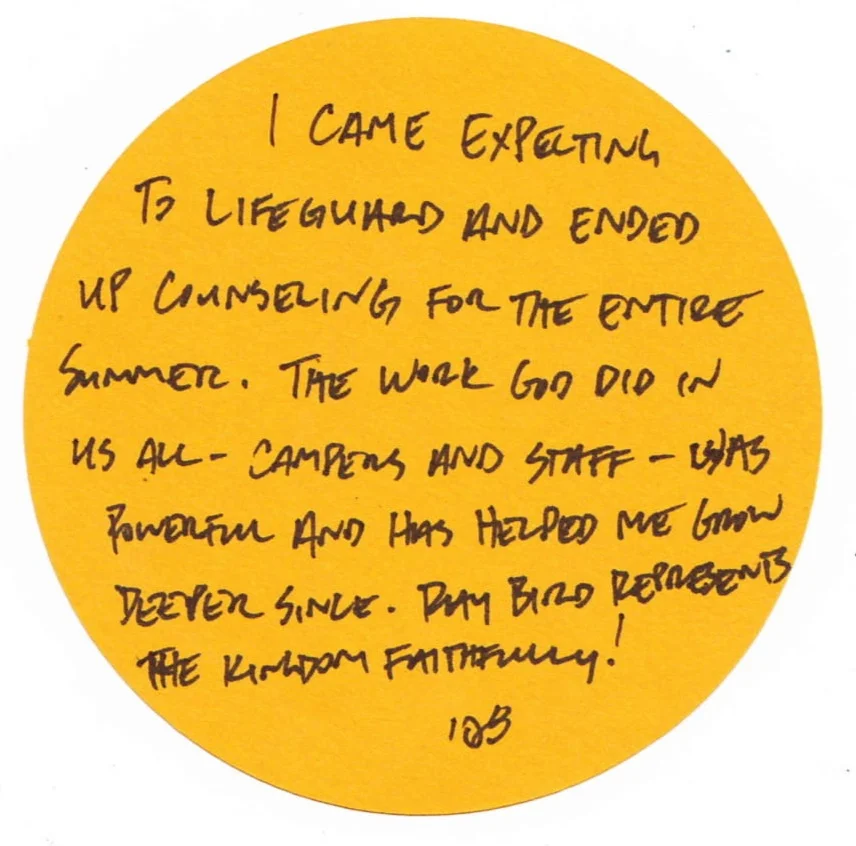 I CAME EXPECTING
TO LIFEGUARD AND ENDED
UP COUNSELING FOR THE ENTIRE
SUMMER. THE WORK GOD DID IN
US ALL - CAMPERS AND STAFF - WAS
POWERFUL AND HAS HELPED ME GROW
DEEPER SINCE. RAY BIRD REPRESENTS
THE KINGDOM FAITHFULLY!